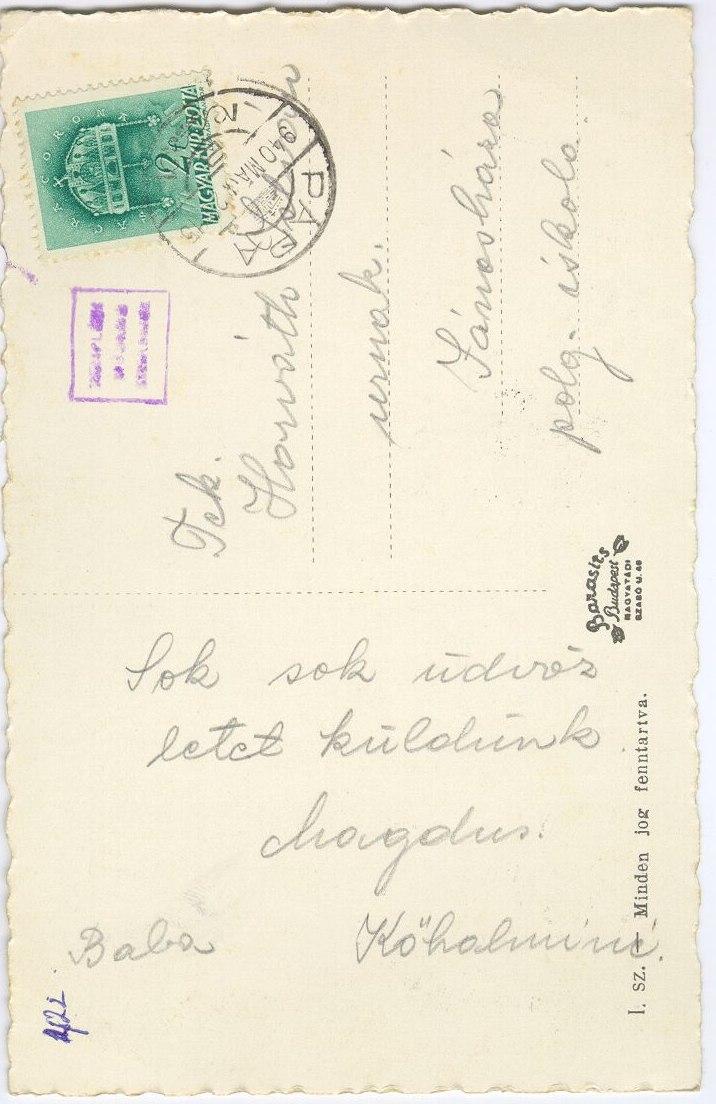 SACRA CORONA
2
MAGYAR KIR. POSTA
PÁPA
940 MÁJ.
Tek.
Horváth
urnak.
Jánosháza
polg. iskola.
Sok sok üdvöz
letet küldünk.
Magdus.
Baba
Kőhalminé.
Barasits
Budapest
NAGYATÁDI
SZABÓ U. 48
I. sz. — Minden jog fenntartva.